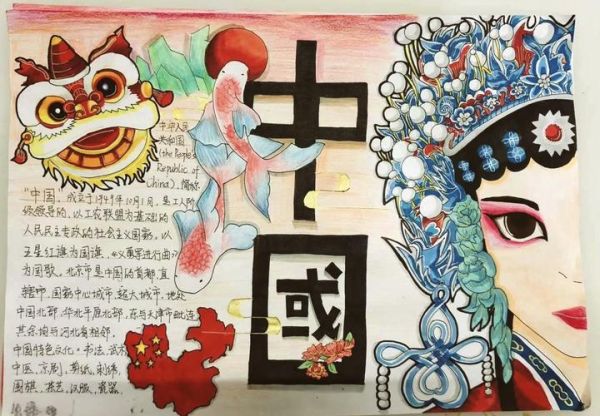 中國
中华人民
共和国
(the People's
Republic of
China), 简称
"中国", 成立于1949年10月1日, 是工人阶
级领导的, 以工农联盟为基础的
人民民主专政的社会主义国家, 以
五星红旗为国旗, 《义勇军进行曲》
为国歌, 北京市是中国的首都, 直
辖市, 国家中心城市, 超大城市, 地处
中国北部, 华北平原北部, 东与天津市毗连,
其余均与河北省相邻,
中国特色文化: 书法, 武术
中医, 京剧, 剪纸, 刺绣,
围棋, 茶艺, 汉服, 瓷器,